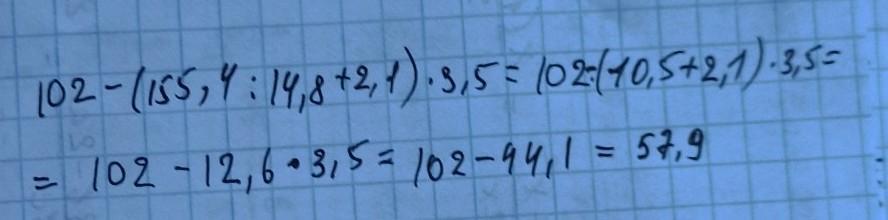 102-(155,4:14,8+2,1)·3,5=102-(10,5+2,1)·3,5=
=102-12,6·3,5=102-44,1=57,9